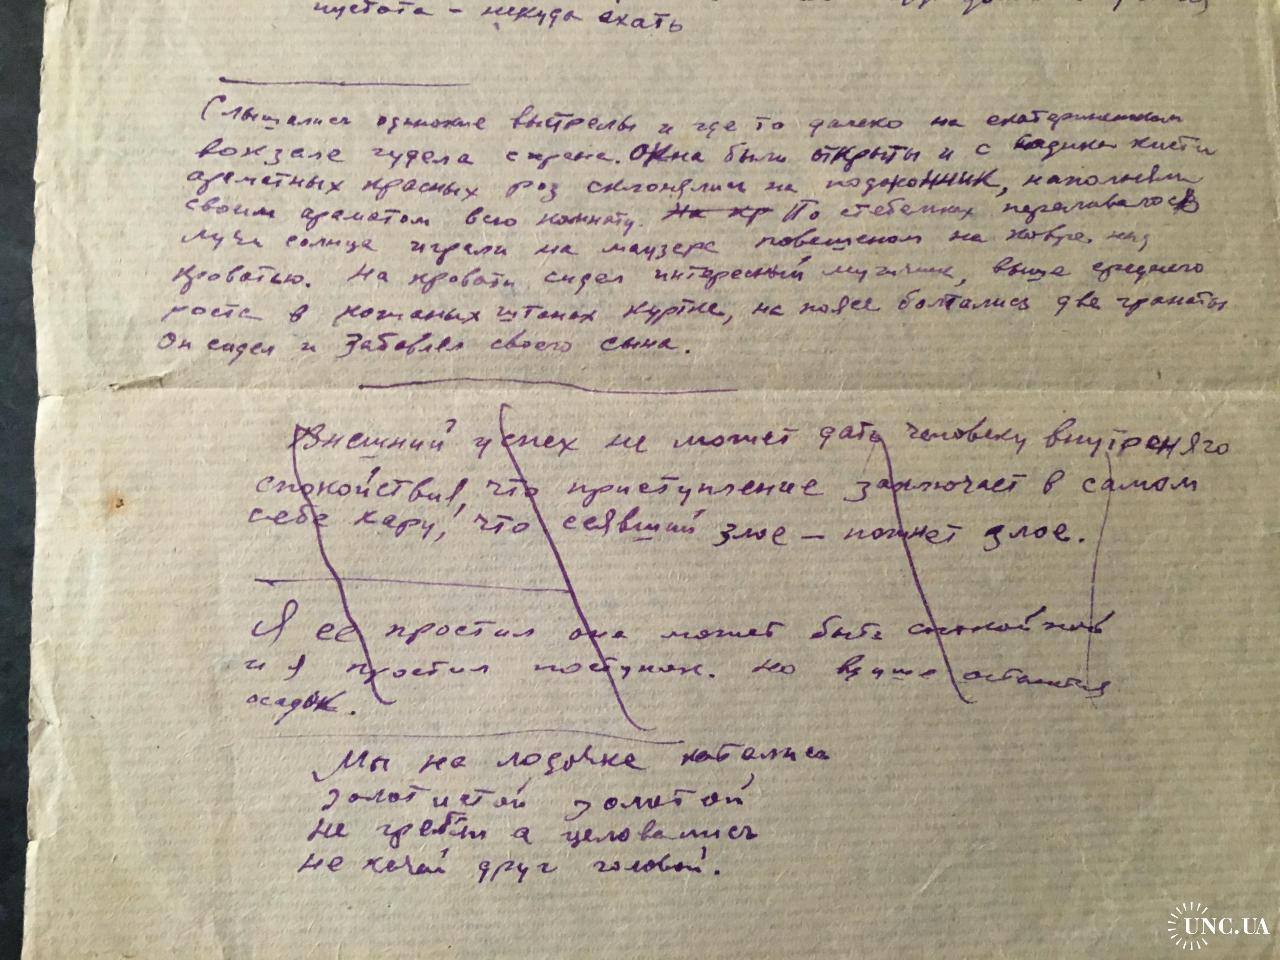 пустота – некуда ехать
Слышались одинокие выстрелы и где то далеко на екатерининском
вокзале гудела сирена. Окна были открыты и с кисти
ароматных красных роз склонялись на подоконник, наполняли
своим ароматом всю комнату. На кр По стебелках переливалось
луча солнца играли на маузере повешеном на ковре над
кроватью. На кровати сидел интересный мужчина, выше среднего
роста в кожаных штанах куртке, на поясе болтались две гранаты
Он сидел и забовлял своего сына.
Внешний успех не может дать человеку внутреняго
спокойствия, что приступление заключает в самом
себе кару, что сеявший злое – пожнет злое.
Я ее простил она может быть спокойной
и я простил поступок. Но в душе останется
осадок.
Мы на лодочке катались
золотистой золотой
не гребли а целовались
не качай друг головой.
UNC.UA